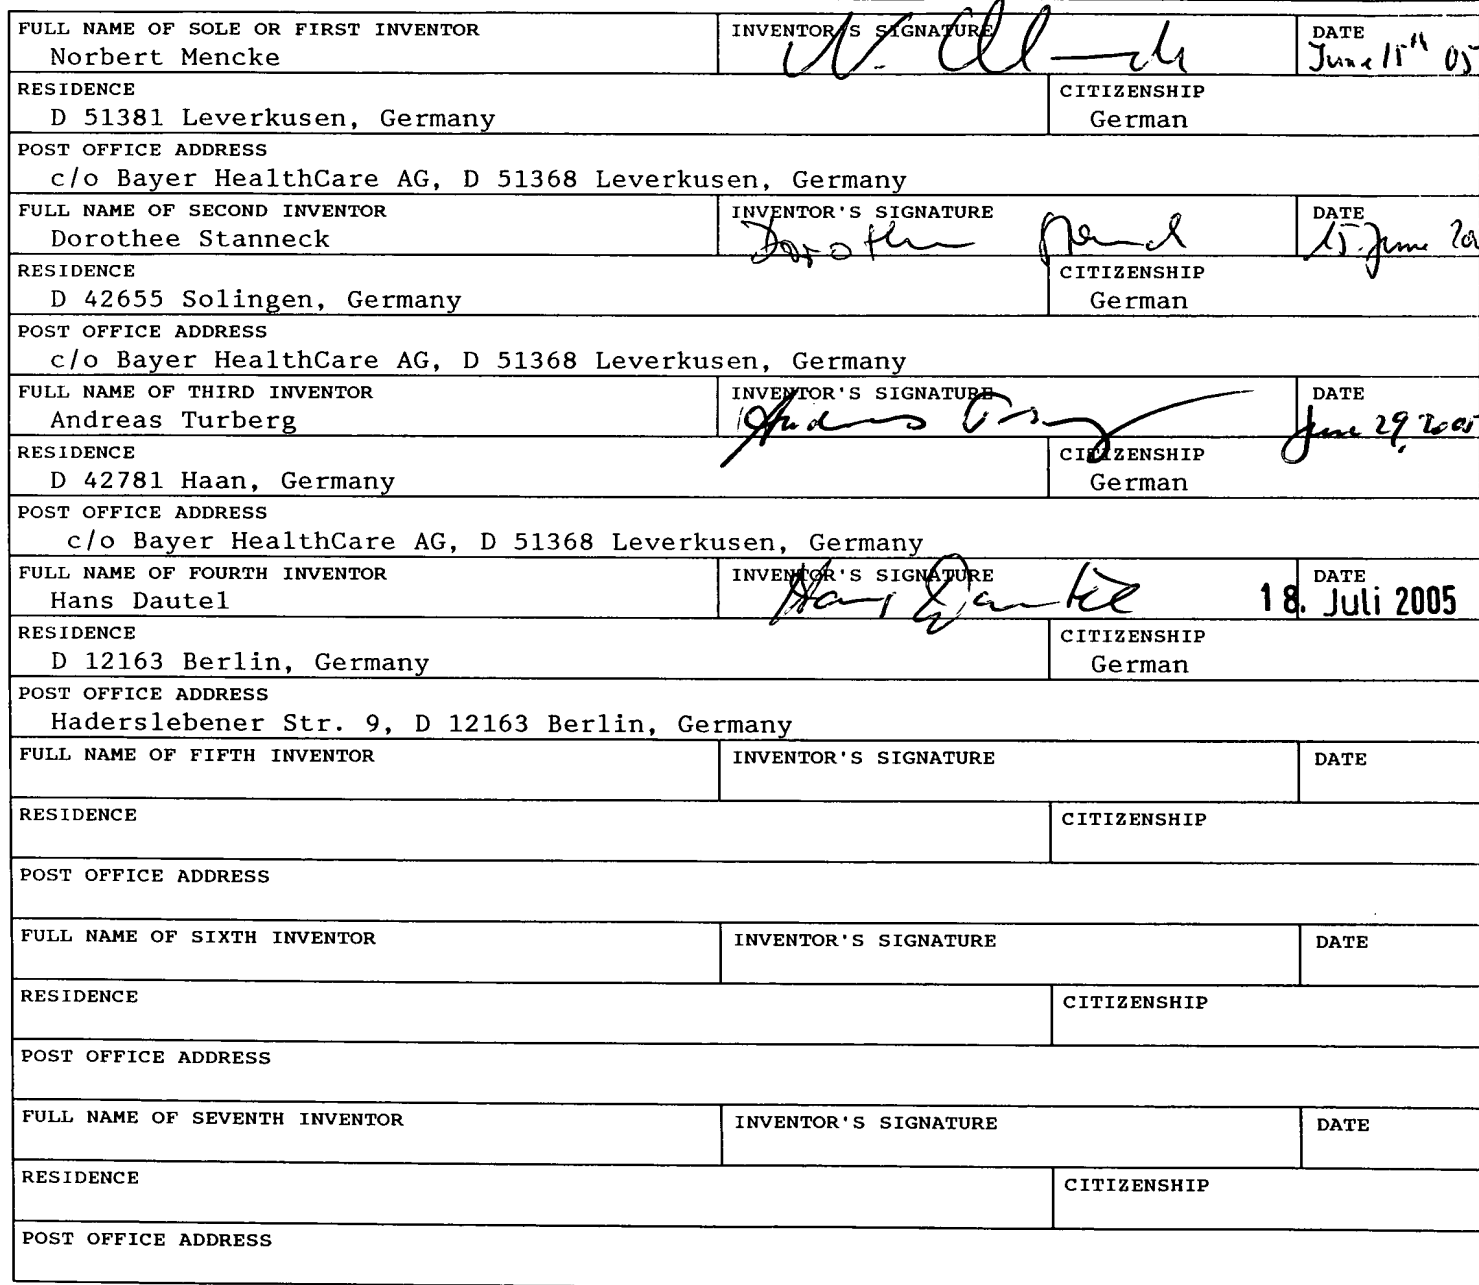 FULL NAME OF SOLE OR FIRST INVENTOR INVENTOR'S SIGNATURE DATE
Norbert Mencke June 15th 05
RESIDENCE CITIZENSHIP
D 51381 Leverkusen, Germany German
POST OFFICE ADDRESS
c/o Bayer HealthCare AG, D 51368 Leverkusen, Germany
FULL NAME OF SECOND INVENTOR INVENTOR'S SIGNATURE DATE
Dorothee Stanneck Dorothee 15. June 20
RESIDENCE CITIZENSHIP
D 42655 Solingen, Germany German
POST OFFICE ADDRESS
c/o Bayer HealthCare AG, D 51368 Leverkusen, Germany
FULL NAME OF THIRD INVENTOR INVENTOR'S SIGNATURE DATE
Andreas Turberg Andreas June 29, 2005
RESIDENCE CITIZENSHIP
D 42781 Haan, Germany German
POST OFFICE ADDRESS
c/o Bayer HealthCare AG, D 51368 Leverkusen, Germany
FULL NAME OF FOURTH INVENTOR INVENTOR'S SIGNATURE DATE
Hans Dautel Hans Dautel 18. Juli 2005
RESIDENCE CITIZENSHIP
D 12163 Berlin, Germany German
POST OFFICE ADDRESS
Haderslebener Str. 9, D 12163 Berlin, Germany
FULL NAME OF FIFTH INVENTOR INVENTOR'S SIGNATURE DATE
RESIDENCE CITIZENSHIP
POST OFFICE ADDRESS
FULL NAME OF SIXTH INVENTOR INVENTOR'S SIGNATURE DATE
RESIDENCE CITIZENSHIP
POST OFFICE ADDRESS
FULL NAME OF SEVENTH INVENTOR INVENTOR'S SIGNATURE DATE
RESIDENCE CITIZENSHIP
POST OFFICE ADDRESS